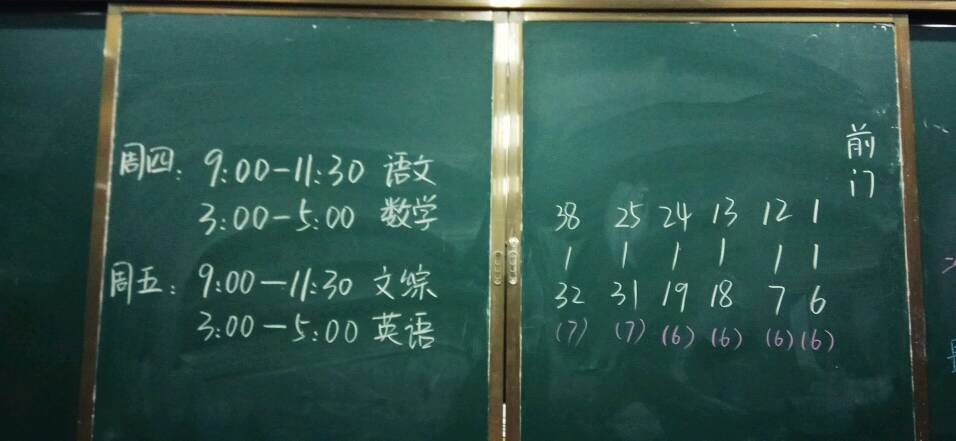 周四: 9:00-11:30 语文
3:00-5:00 数学
周五: 9:00-11:30 文综
3:00-5:00 英语
前门
38 25 24 13 12 1
| | | | | |
32 31 19 18 7 6
(7) (7) (6) (6) (6) (6)